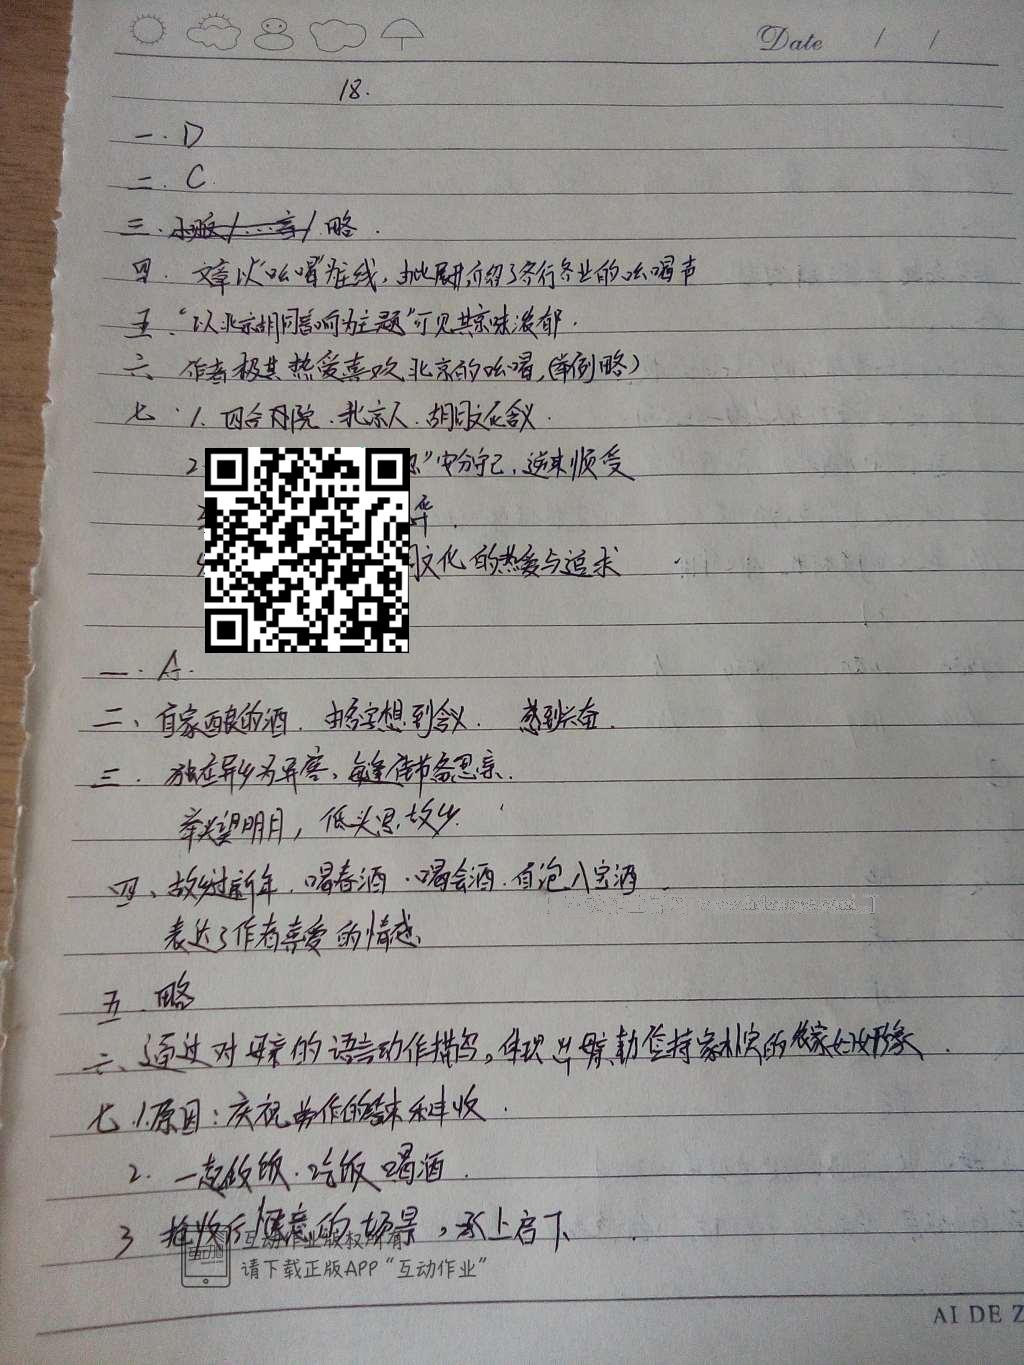 Date / /
18.
一. D
二. C
三. 略.
四. 文章以“吆喝”为主线, 由此展开介绍了各行各业的吆喝声
五. “以北京胡同音响为主题”可见其京味浓郁.
六 作者极其热爱喜欢北京的吆喝,(举例略)
七 1. 四合院. 北京人. 胡同文化含义.
2. ”安分守己, 逆来顺受
华.
文化的热爱与追求
一. A.
二、自家酿的酒. 由名字想到含义. 感到兴奋.
三. 独在异乡为异客, 每逢佳节倍思亲.
举头望明月, 低头思故乡.
四、故乡过新年. 喝春酒. 喝会酒. 自泡八宝酒.
表达了作者喜爱的情感.
五. 略
六、通过对母亲的语言动作描写, 体现出母亲勤俭持家朴实的农家妇女形象.
七. 1.原因: 庆祝劳作的结束和丰收.
2. 一起做饭. 吃饭 喝酒.
3 抢收后惬意的场景, 承上启下.
互动作业版权所有
请下载正版APP“互动作业”
AI DE Z